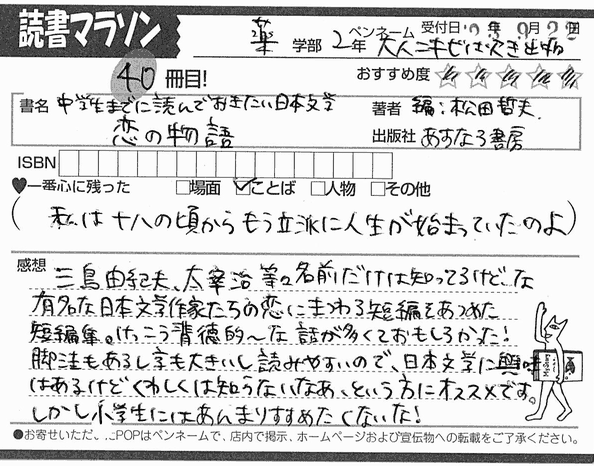 読書マラソン
薬 学部 2年 ペンネーム 受付日 年 9月 2 日
40 冊目! おすすめ度
書名 中学生までに読んでおきたい日本文学 著者 編:松田哲夫
恋の物語 出版社 あすなろ書房
ISBN
♥一番心に残った □場面 ☑ことば □人物 □その他
(私は十八の頃からもう立派に人生が始まっていたのよ)
感想
三島由紀夫、太宰治等々名前だけは知ってるけど、な
有名な日本文学作家たちの恋にまつわる短編をあつめた
短編集。けっこう背徳的〜な話が多くておもしろかった!
脚注もあるし字も大きいし読みやすいので、日本文学に興味
はあるけどくわしくは知らないなあ、という方にオススメです。
しかし小学生にはあんまりすすめたくないな!
●お寄せいただいたPOPはペンネームで、店内で掲示、ホームページおよび宣伝物への転載をご了承ください。